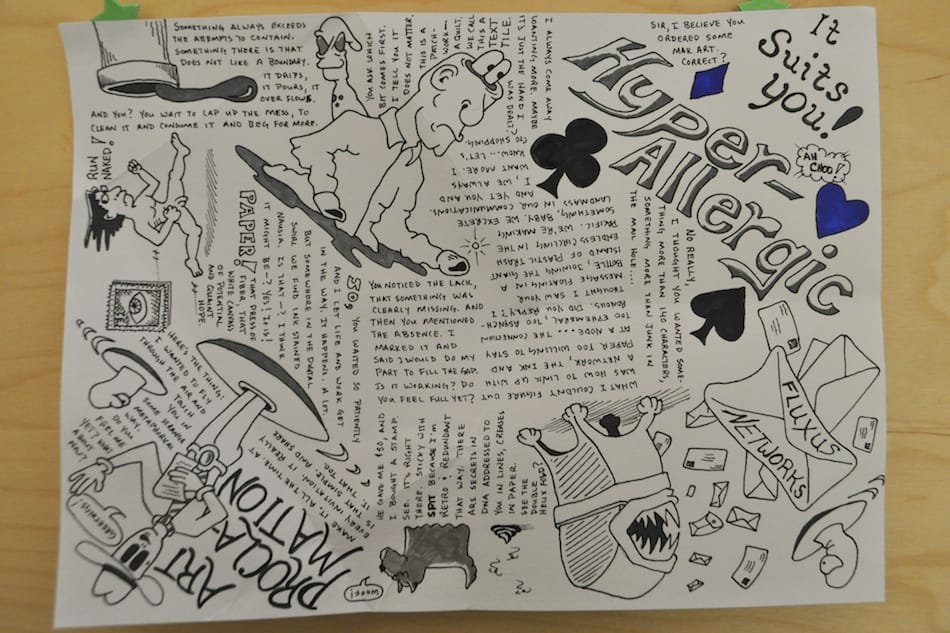 SOMETHING ALWAYS EXCEEDS
THE ATTEMPTS TO CONTAIN.
SOMETHING THERE IS THAT
DOES NOT LIKE A BOUNDARY.
IT DRIPS,
IT POURS, IT
OVER FLOWS.
AND YOU? YOU WAIT TO LAP UP THE MESS, TO
CLEAN IT AND CONSUME IT AND BEG FOR MORE.
YOU ASK WHICH
BIT COMES FIRST.
I TELL YOU IT
DOES NOT MATTER.
THIS IS A
PATCH-
WORK—
A QUILT.
WE CALL
THIS A
TEXT
TILE.
I ALWAYS COME AWAY
WANTING MORE. MAYBE
IT'S JUST THE HAND I
WAS DEALT?
SIR, I BELIEVE YOU
ORDERED SOME
MAIL ART.
CORRECT?
It
Suits
you!
Hyper-
Allergic
AH
CHOO!
NO REALLY.
I THOUGHT YOU WANTED SOME-
THING MORE THAN 140 CHARACTERS,
SOMETHING MORE THAN JUNK IN
THE MAIL HOLE....
RUN
NAKED!
PAPER!
THAT PRESS OF
FIBER, THAT
WHITE CANVAS
OF POTENTIAL
AND QUAINT
HOPE
WHAT I COULDN'T FIGURE OUT
WAS HOW TO LINK UP WITH
A NETWORK, THE INK AND
PAPER TOO WILLING TO STAY
AT A NODE...
TOO EPHEMERAL, TOO
DID YOU REPLY? I
THOUGHT I SAW YOUR
MESSAGE FLOATING IN A
BOTTLE, JOINING THE GIANT
ISLAND OF PLASTIC TRASH
ENDLESS CIRCLING IN THE
PACIFIC. WE'RE MAKING
SOMETHING, BABY. WE EXCRETE
LANDMASS IN OUR COMMUNICATIONS.
AND YET YOU AND
I, WE ALWAYS
WANT MORE. I
KNOW... LET'S
GO SHOPPING.
SO, YOU WAITED SO PATIENTLY
AND I LET LIFE AND WORK GET
IN THE WAY. IT HAPPENS. A LOT.
BUT SOMEWHERE IN THE
SWIRL WE FIND INK STAINED
IS THAT—? I THINK
IT MIGHT BE—? YES! IT IS!
YOU NOTICED THE LACK,
THAT SOMETHING WAS
CLEARLY MISSING. AND
THEN YOU MENTIONED
THE ABSENCE. I
MARKED IT AND
SAID I WOULD DO MY
PART TO FILL THE GAP.
IS IT WORKING? DO
YOU FEEL FULL YET?
HERE'S THE THING:
I WANTED TO FLY
THROUGH THE AIR AND
TOUCH YOU IN
SOME STRANGE
METAPHORIC
WAY.
DO YOU
FEEL ME
YET? WHAT
ABOUT
NOW?
GREETINGS!
ART
PROCLA-
MATION
MAKE ART, ALL THE TIME AT
EVERY INVITATION. IT REALLY
IS THAT SIMPLE. AND SHARE
IT, TOO.
HE GAVE ME $50, AND
I BOUGHT A STAMP.
SEE. IT'S RIGHT
THERE. STICKY WITH
SPIT BECAUSE I'M
RETRO & REDUNDANT
THAT WAY. THERE
ARE SECRETS IN
DNA ADDRESSED TO
YOU IN LINES, CREASES
IN PAPER.
SEE THE
DOUBLE
HELLY FOLD?
FLUXUS
NETWORKS